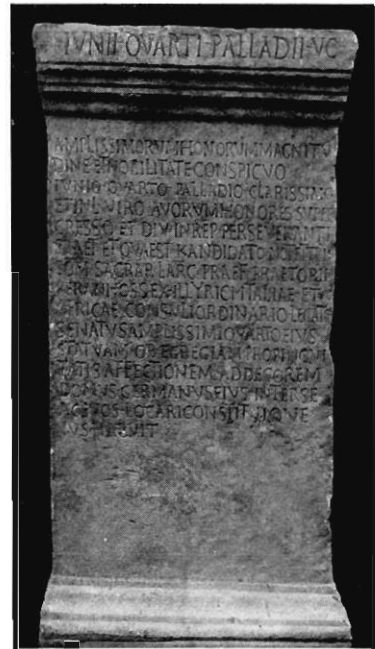 IVNII·QVARTI·PALLADII·VC
AMPLISSIMORVMHONORVMMAGNITV
DINEETNOBILITATECONSPICVO
IVNIO·QVARTO·PALLADIO·CLARISSIMO
ETINL VIRO AVORVMHONORES
GRESSO ET DIV IN REP PERSEVERANTI
ET QVAEST KANDIDATO NOT ET TRI
SACRAR LARG PRAEF PRAETORI
PER ANNOS SEX ILLYRICI ITALIAE ET
AFRICAE CONSVLI ORDINARIO LEGATO
SENATVS AMPLISSIMI QVARTO EIVS
STATVAM OB EGREGIAM
AFFECTIONEM AD DECOREM
DOMVS GERMANVS EIVS INTER SE
LOCARI CONSTITVI QVE